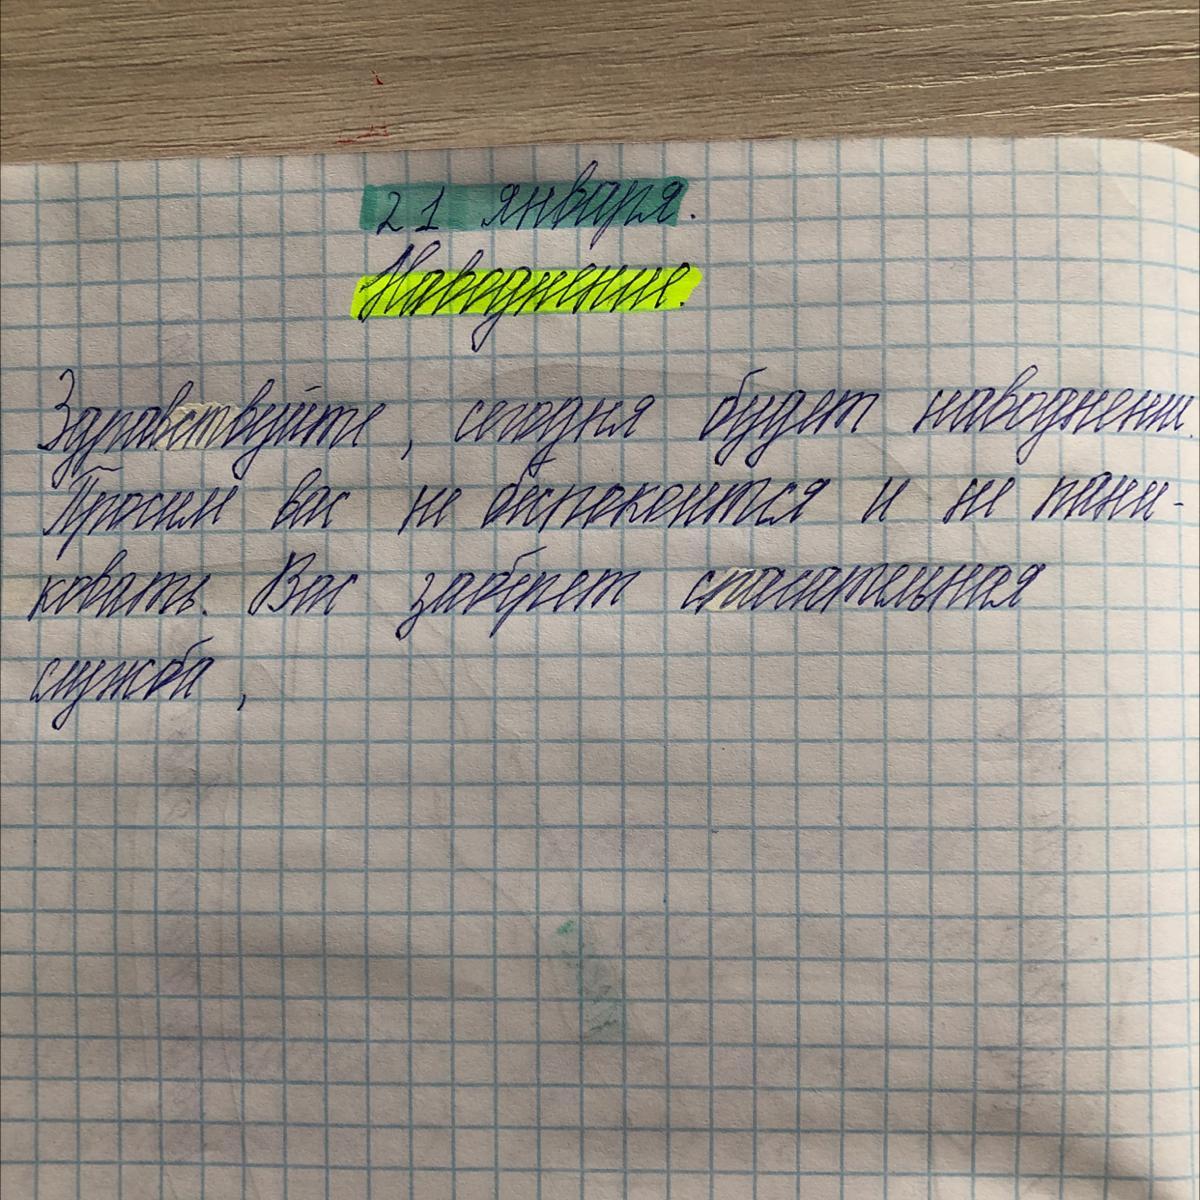 21 января.
Наводнение.
Здравствуйте, сегодня будет наводнени.
Просим вас не беспокоится и не пани-
ковать. Вас заберет спасательная
служба,